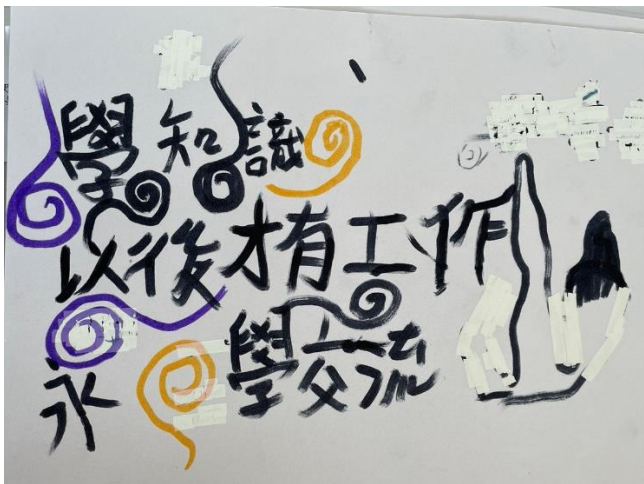 學知識
以後才有工作
永學交流